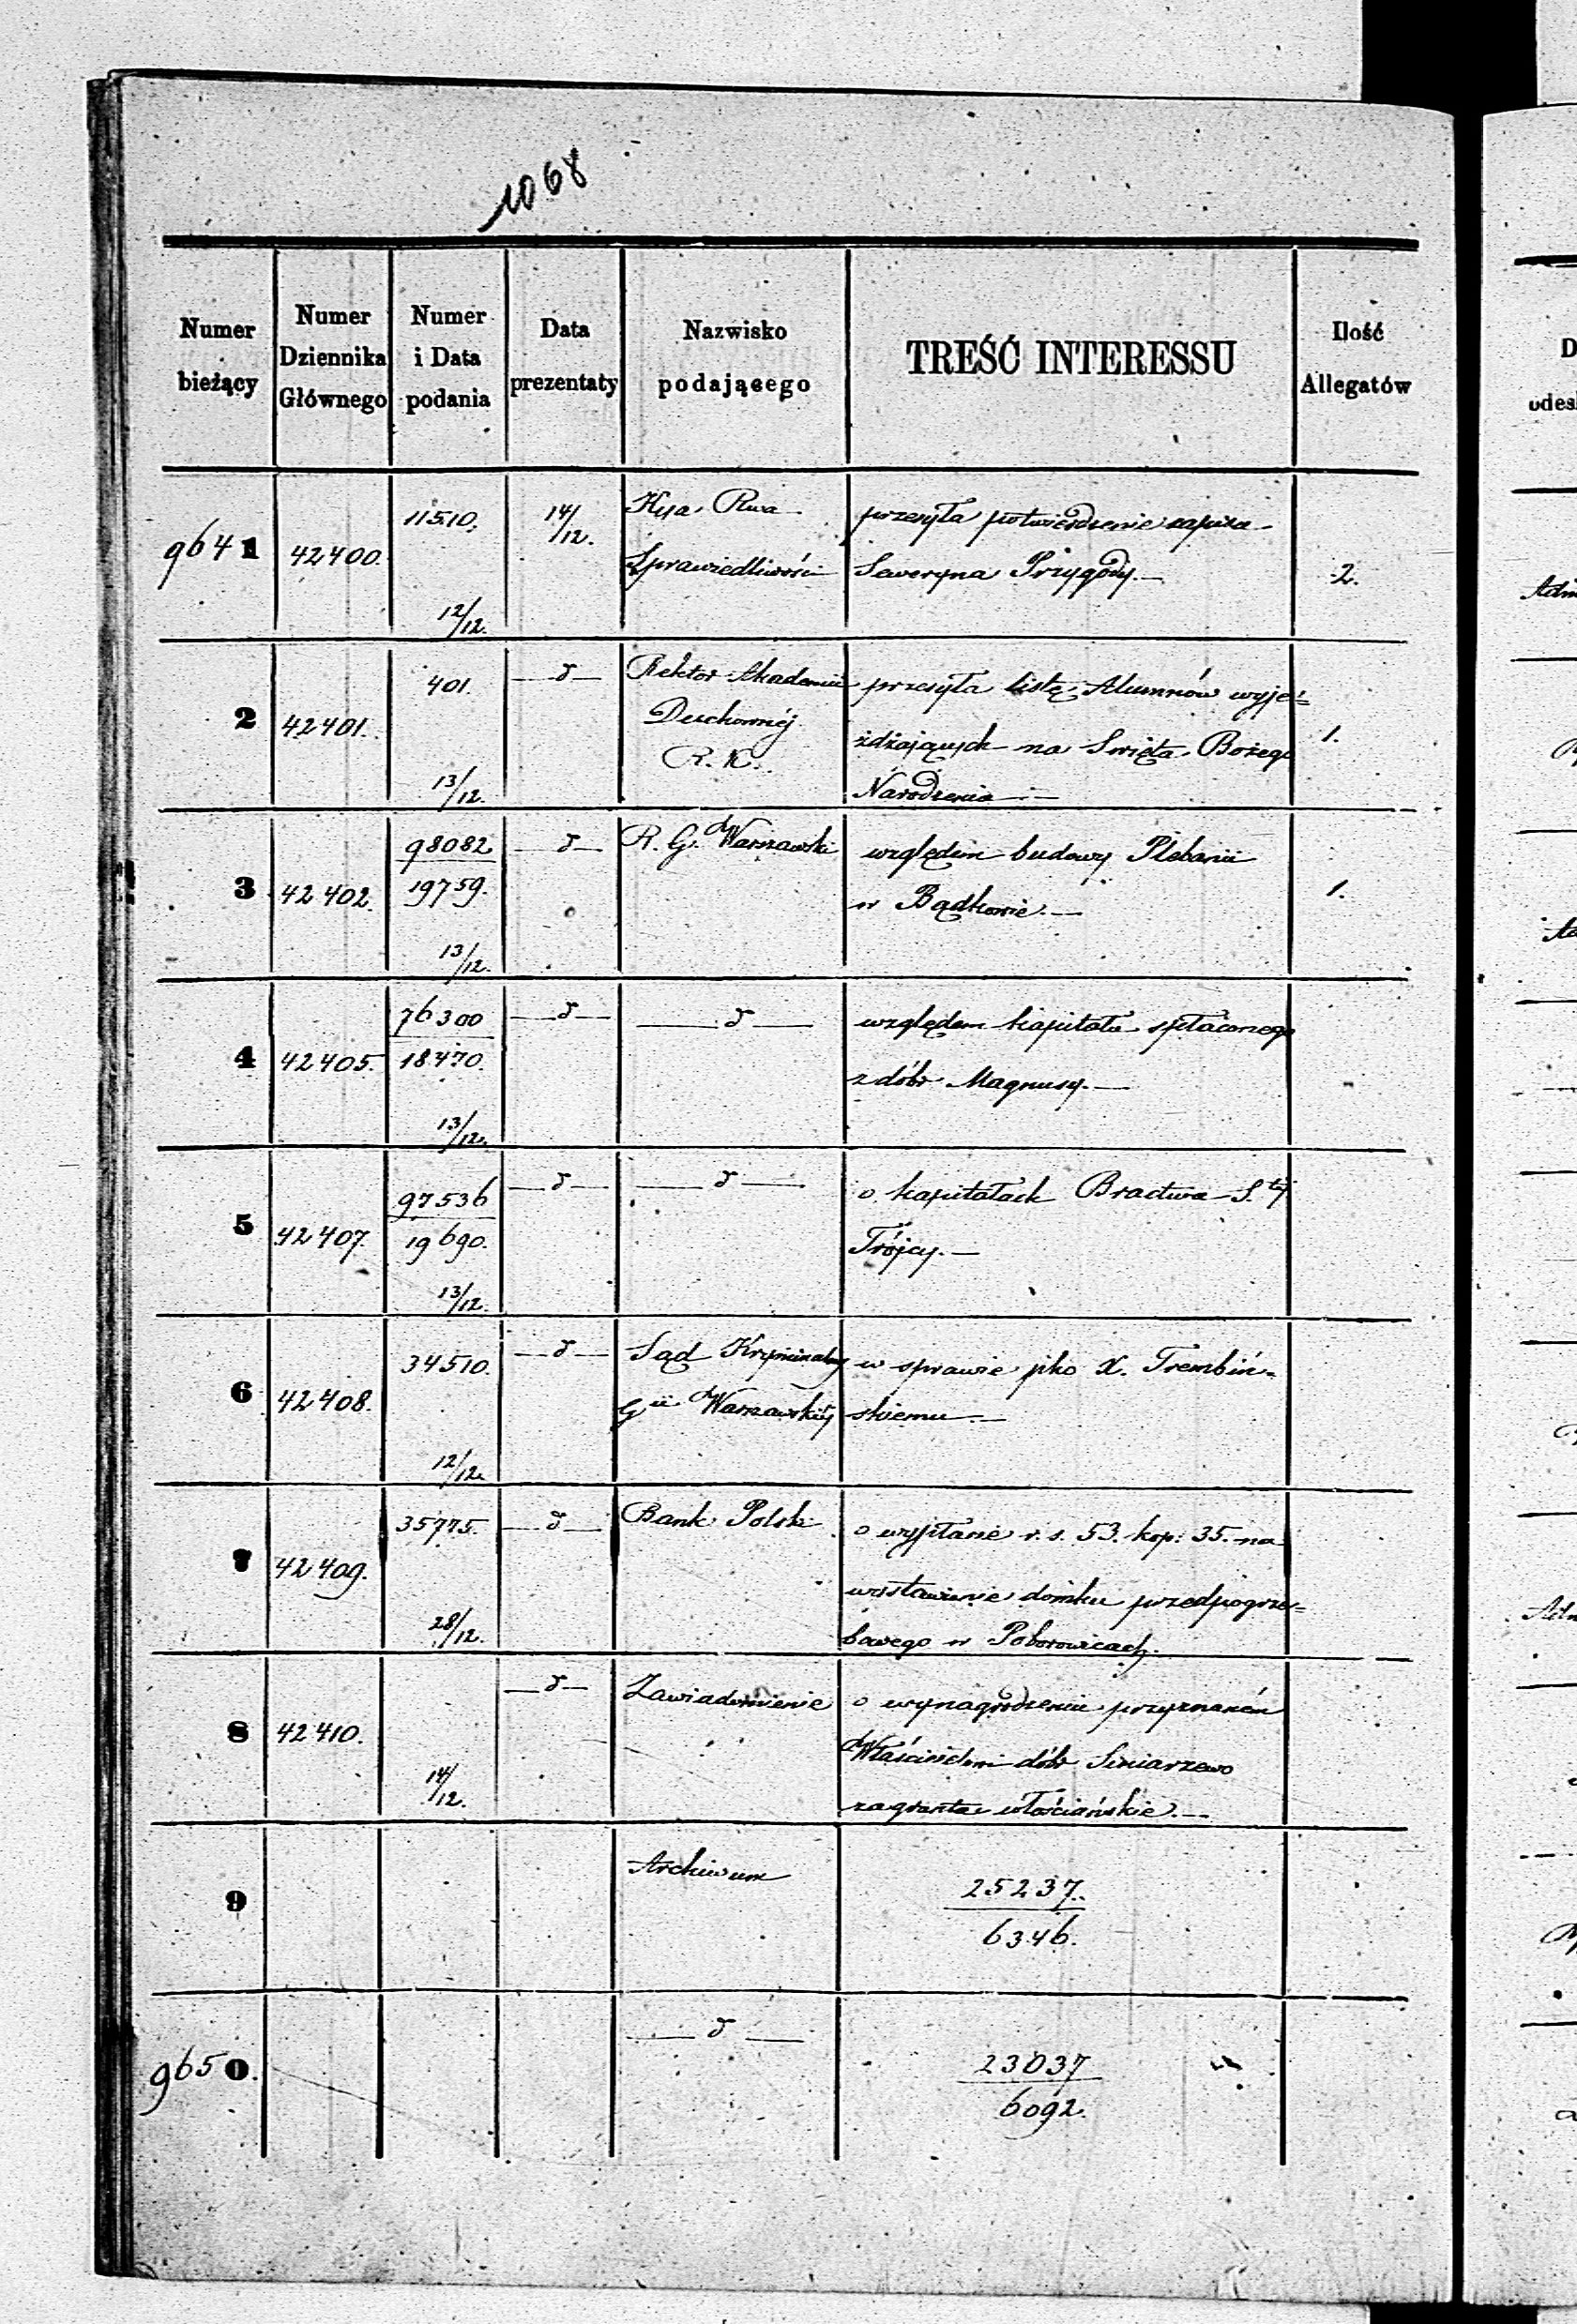 1068
Numer bieżący
Numer Dziennika Głównego
Numer i Data podania
Data prezentaty
Nazwisko podającego
TREŚĆ INTERESSU
Ilość Allegatów
9641
42400.
11510.
12/12.
14/12.
Kŷa Rwa
Sprawiedliwości
przesyła potwierdzenie zapisu
Seweryna Przygody.—
2.
2
42401.
401.
13/12.
—d—
Rektor Akademii
Duchownéj
R. K.
przesyła listę Alumnów wyje=
żdżających na Święta Bożego
Narodzenia.—
1.
3
42402.
98082
19759.
13/12.
—d—
R. G. Warszawski
względem budowy Plebanii
w Bądkowie.—
1.
4
42405.
76300
18470.
13/12.
—d—
—d—
względem kapitału spłaconego
z dóbr Magnusy.—
5
42407.
97536
19690.
13/12.
—d—
—d—
o kapitałach Bractwa S.téj
Trójcy.—
6
42408.
34510.
12/12.
—d—
Sąd Kryminalny
Gii Warszawskiéj
w sprawie pko X. Trembiń=
skiemu.—
7
42409.
35775.
28/12.
—d—
Bank Polski
o wypłacie r. s. 53. kop: 35. na
wystawienie domku przedpogrze=
bowego w Poborowicach.
8
42410.
14/12.
—d—
Zawiadomienie
o wynagrodzeniu przyznaném
Właścicielowi dóbr Siniarzewo
za grunta włościańskie.—
9
Archiwum
25237.
6346.
9650.
—d—
23037
6092.
D
odes